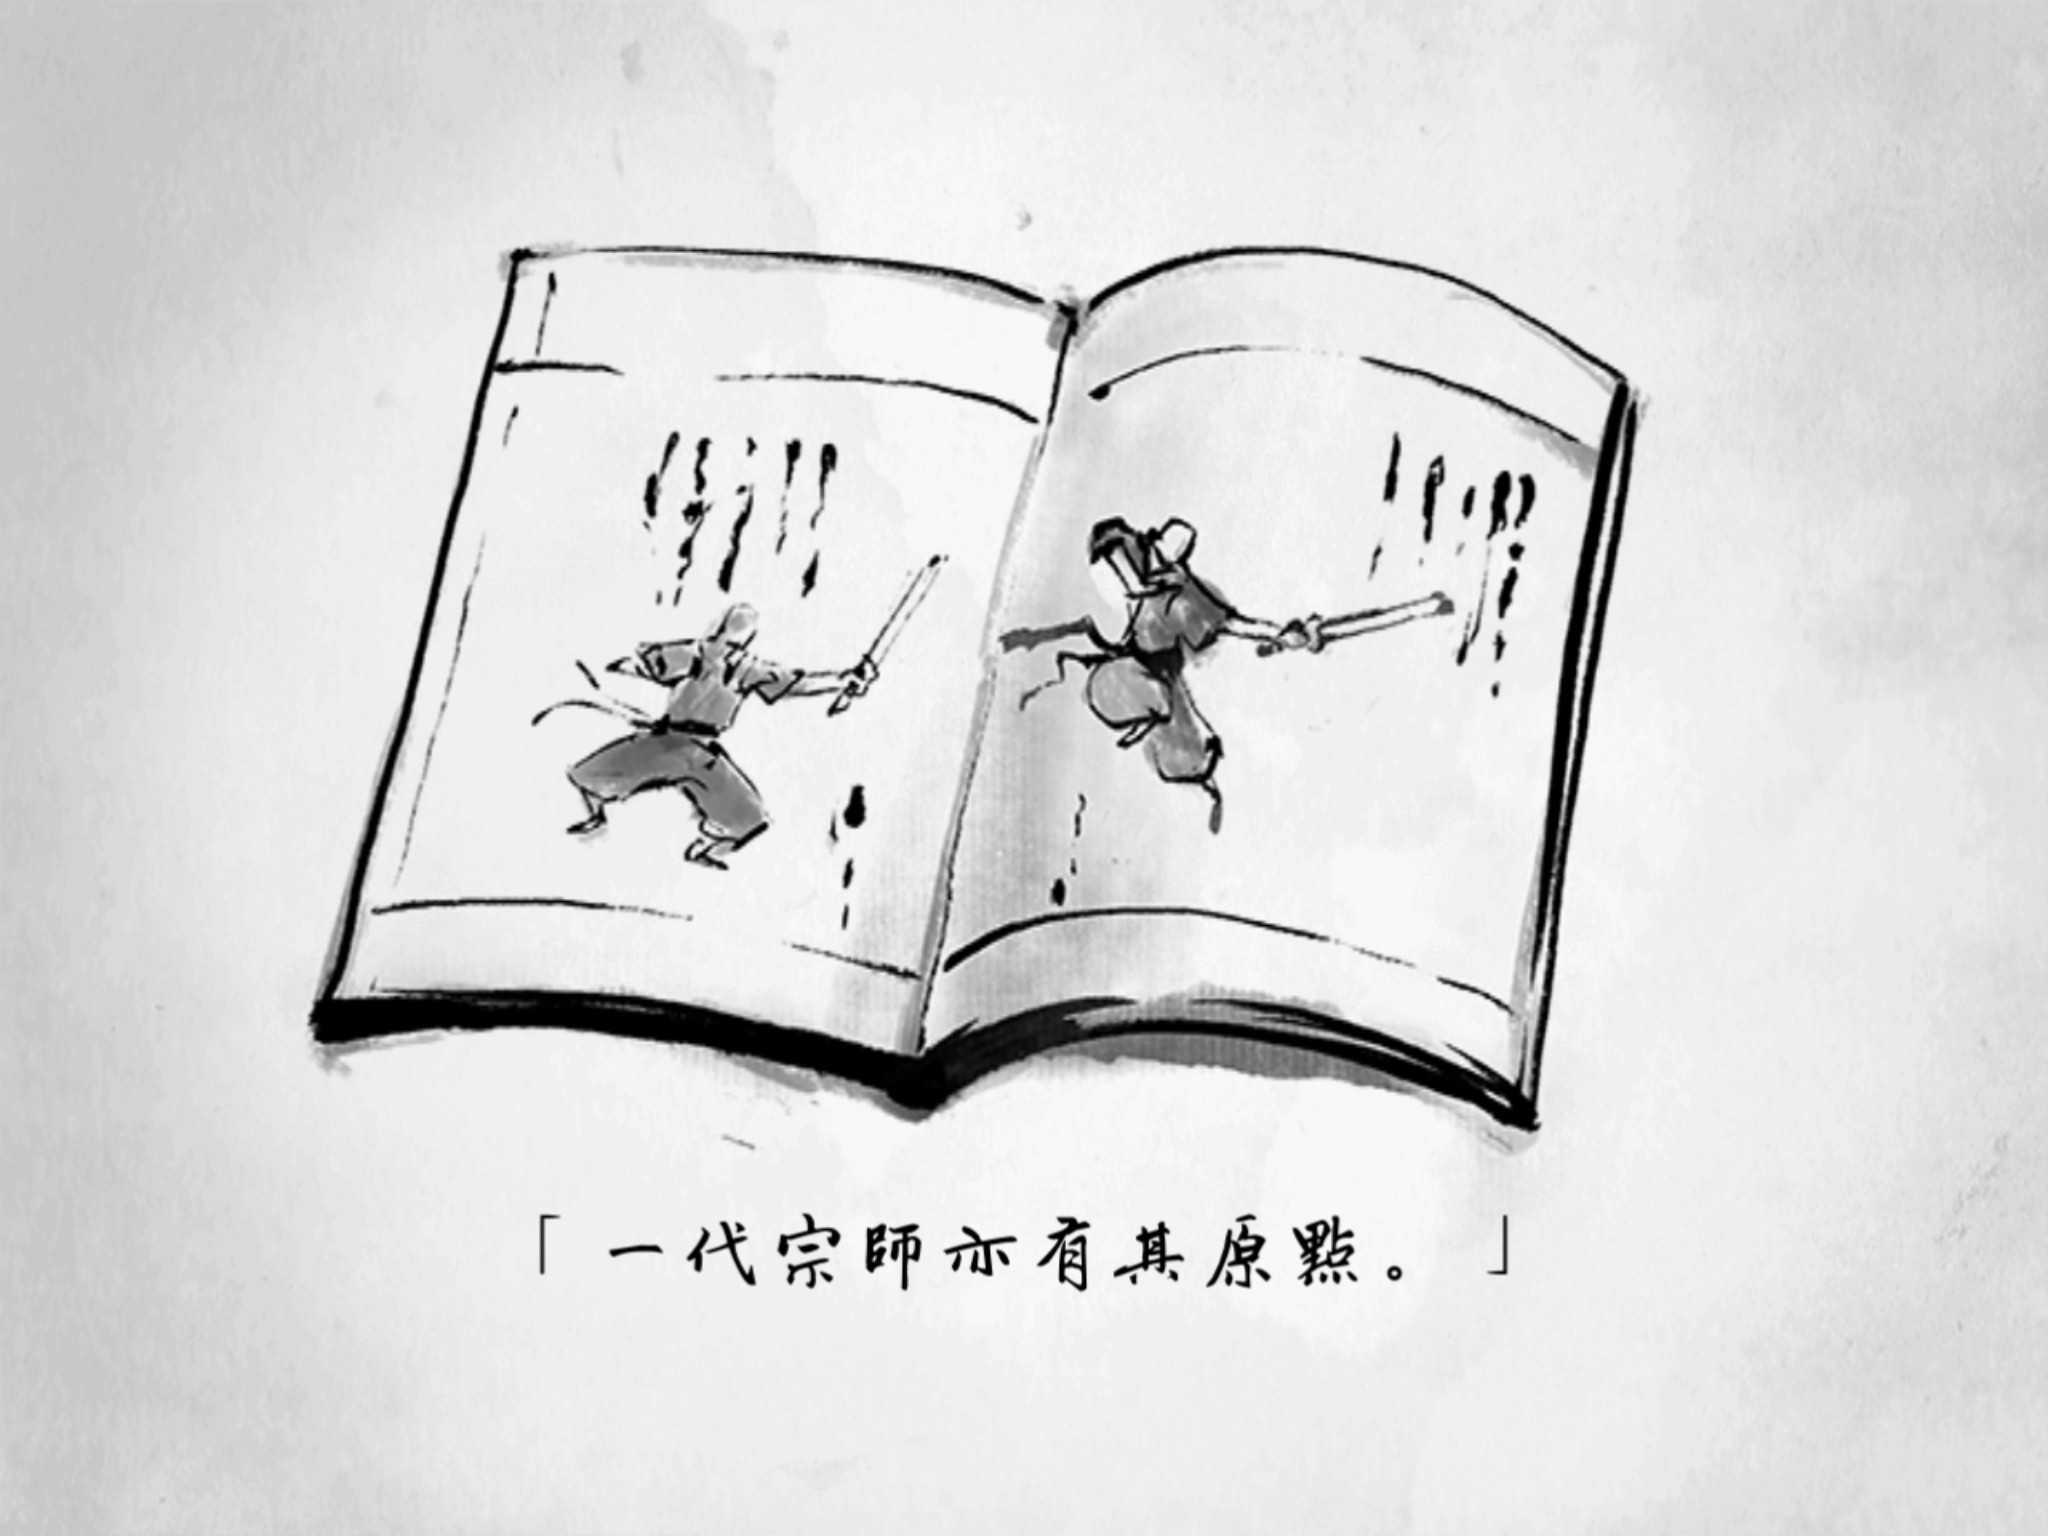 「一代宗師亦有其原點。」